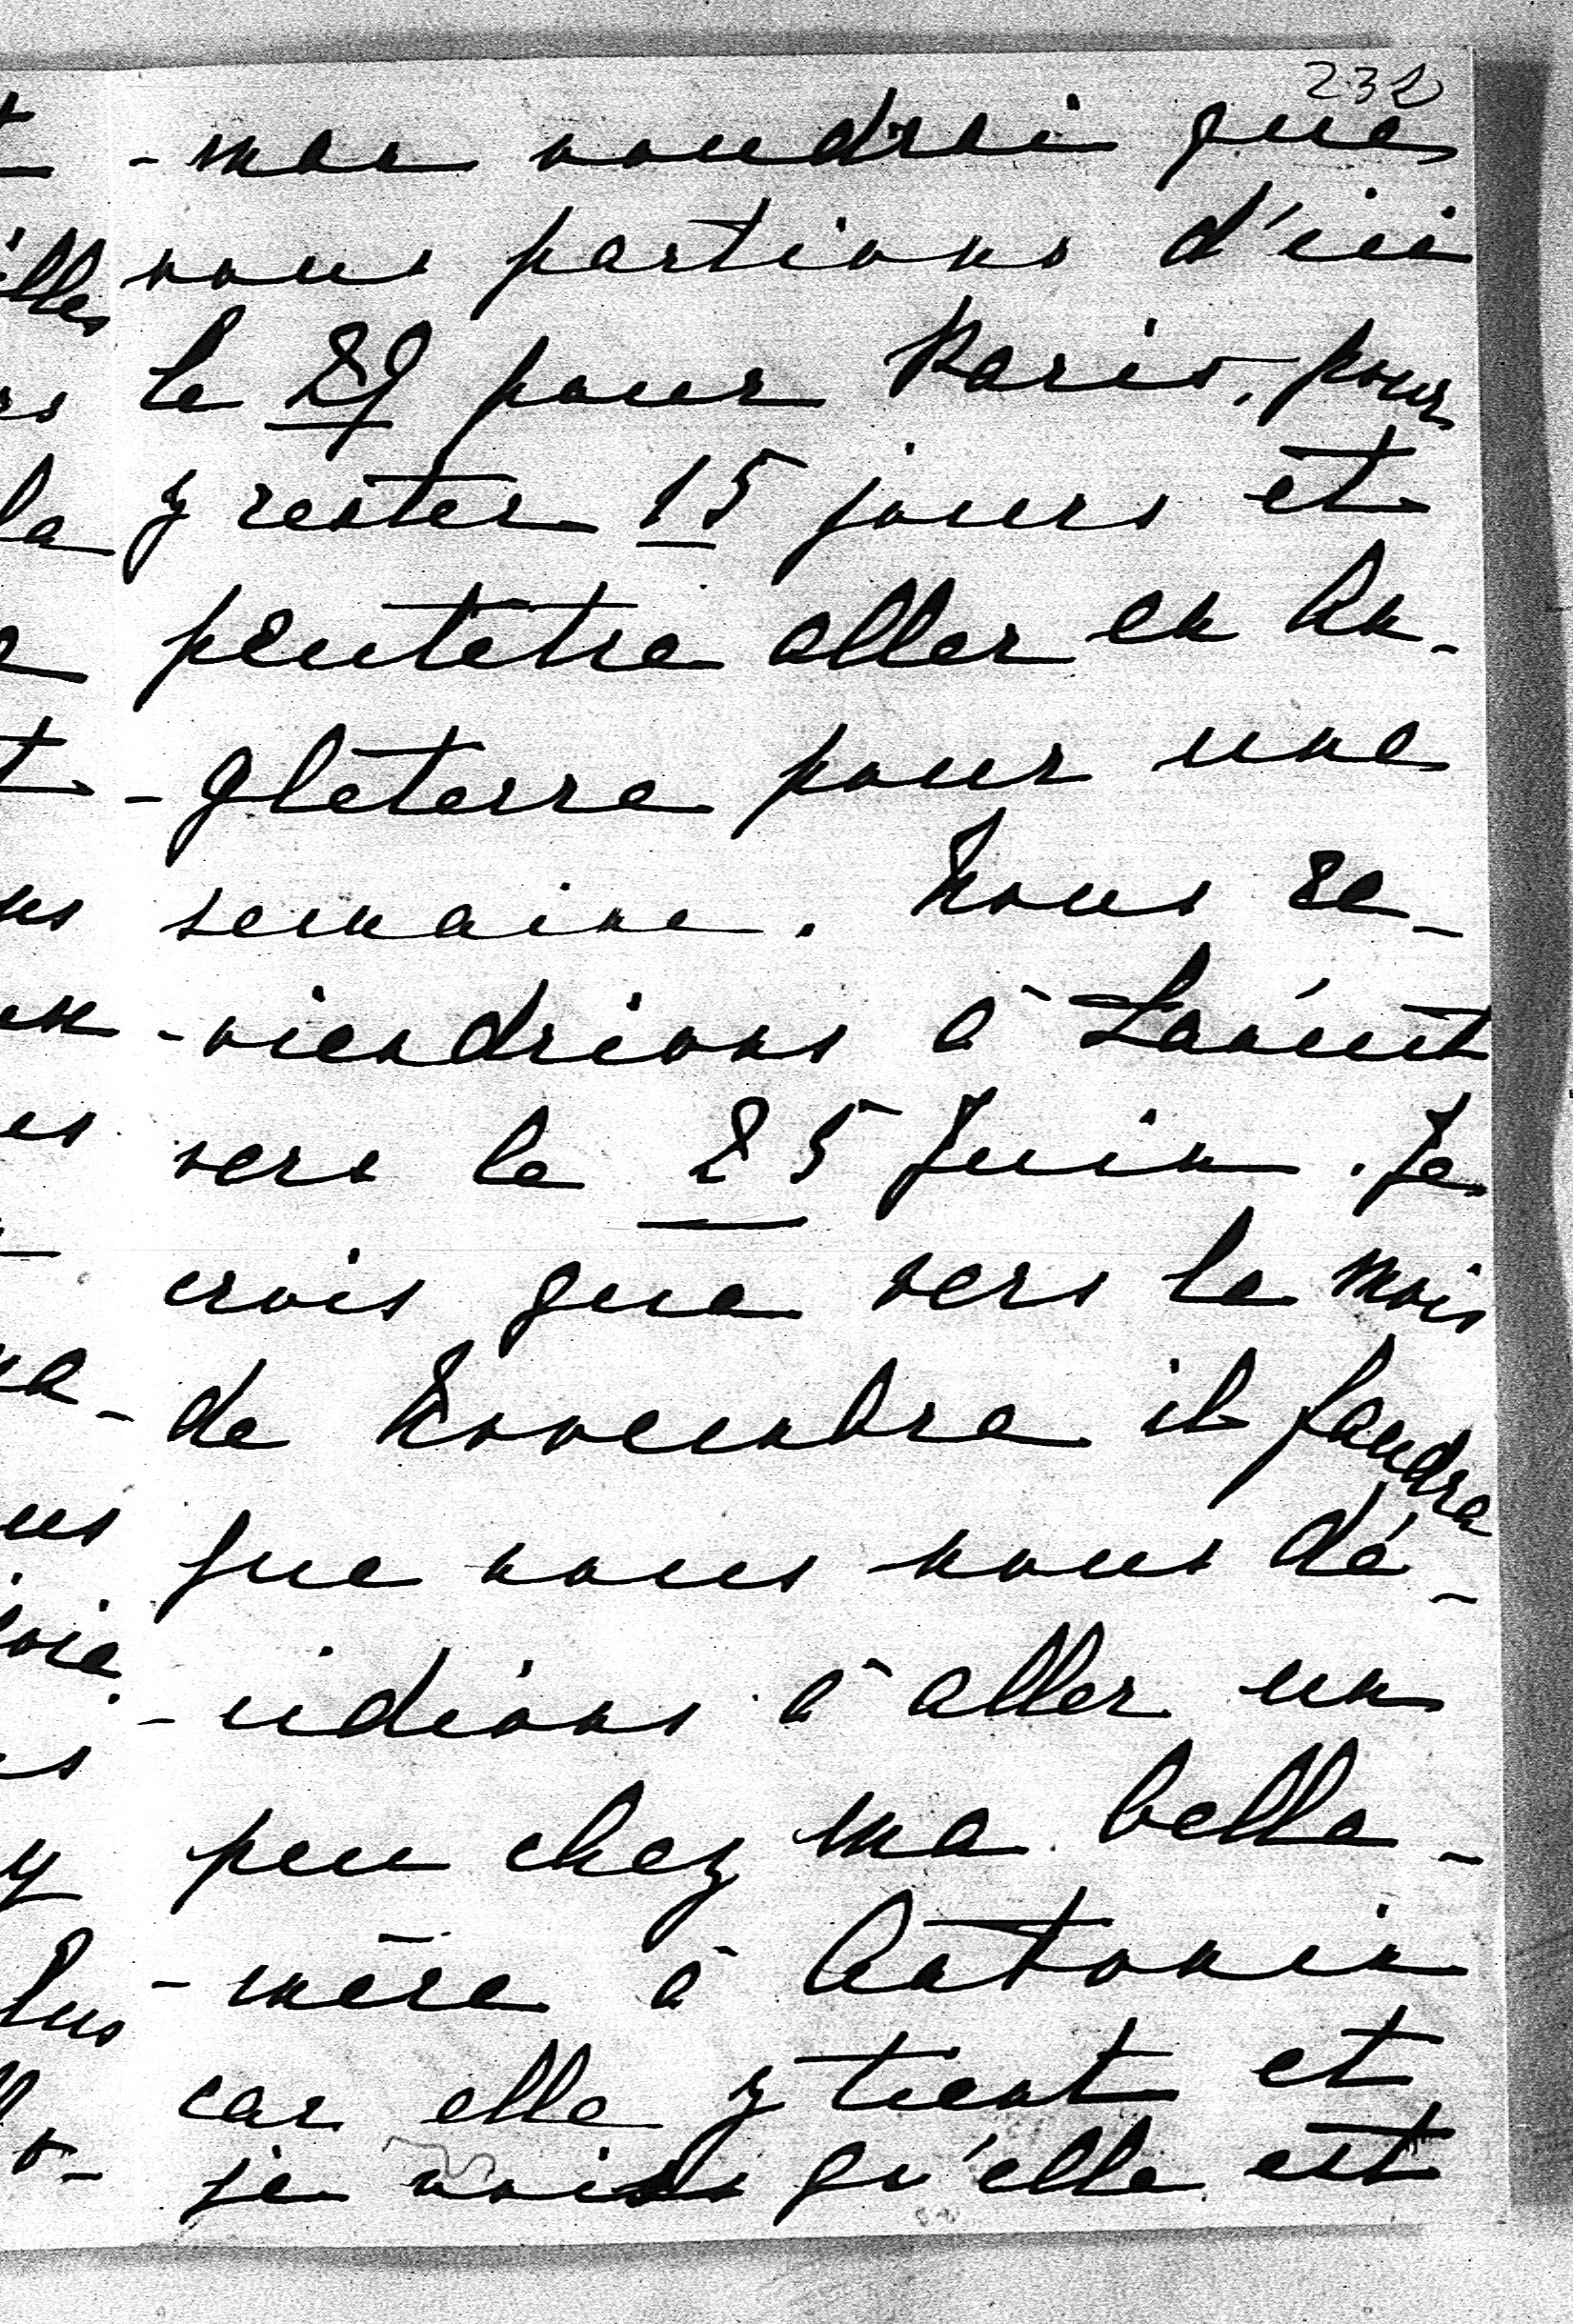 232
-man voudrai que
nous partions d'ici
le 29 pour Paris, pour
y rester 15 jours et
peutêtre aller en An-
-gleterre pour une
semaine. Nous re-
-viendrions à
vers le 25 Juin. Je
crois que vers le mois
de Novembre il faudra
que nous nous dé-
-cidions à aller un
peu chez ma belle-
-mère à Antonin
car elle y tient et
je vois qu'elle est